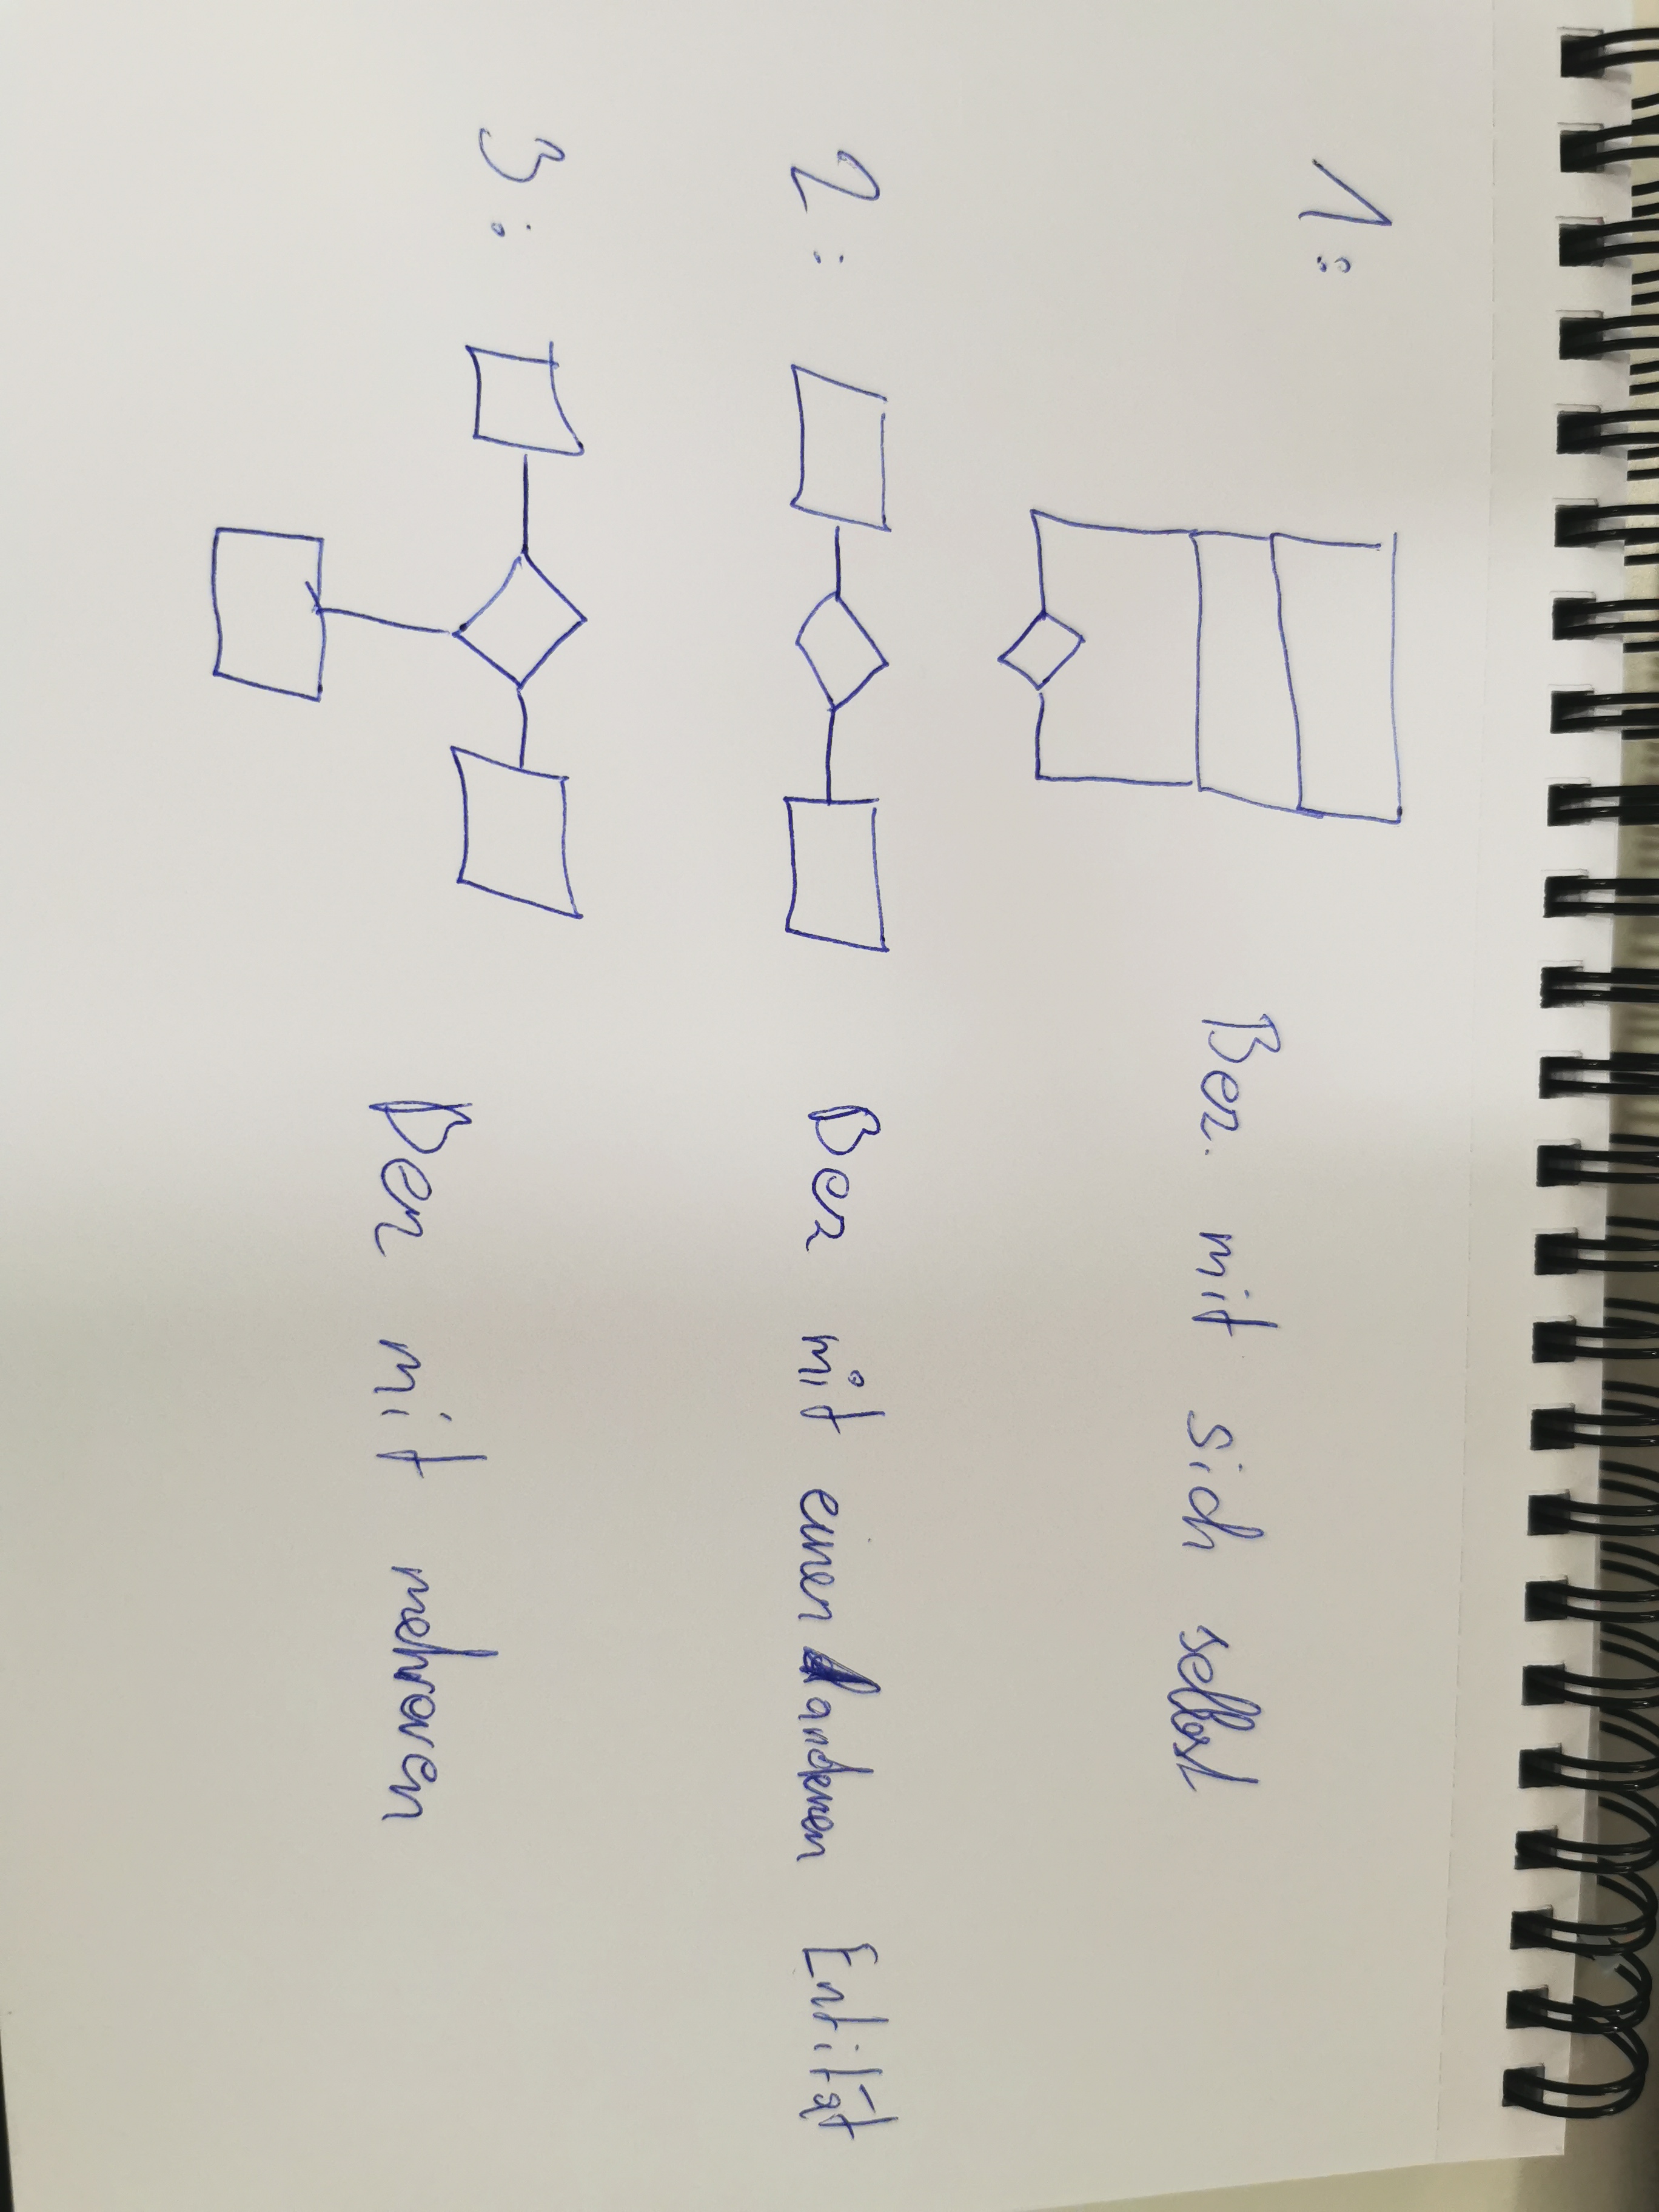 1: Bez. mit sich selbst
2: Bez mit einer anderen Entität
3: Bez mit mehreren